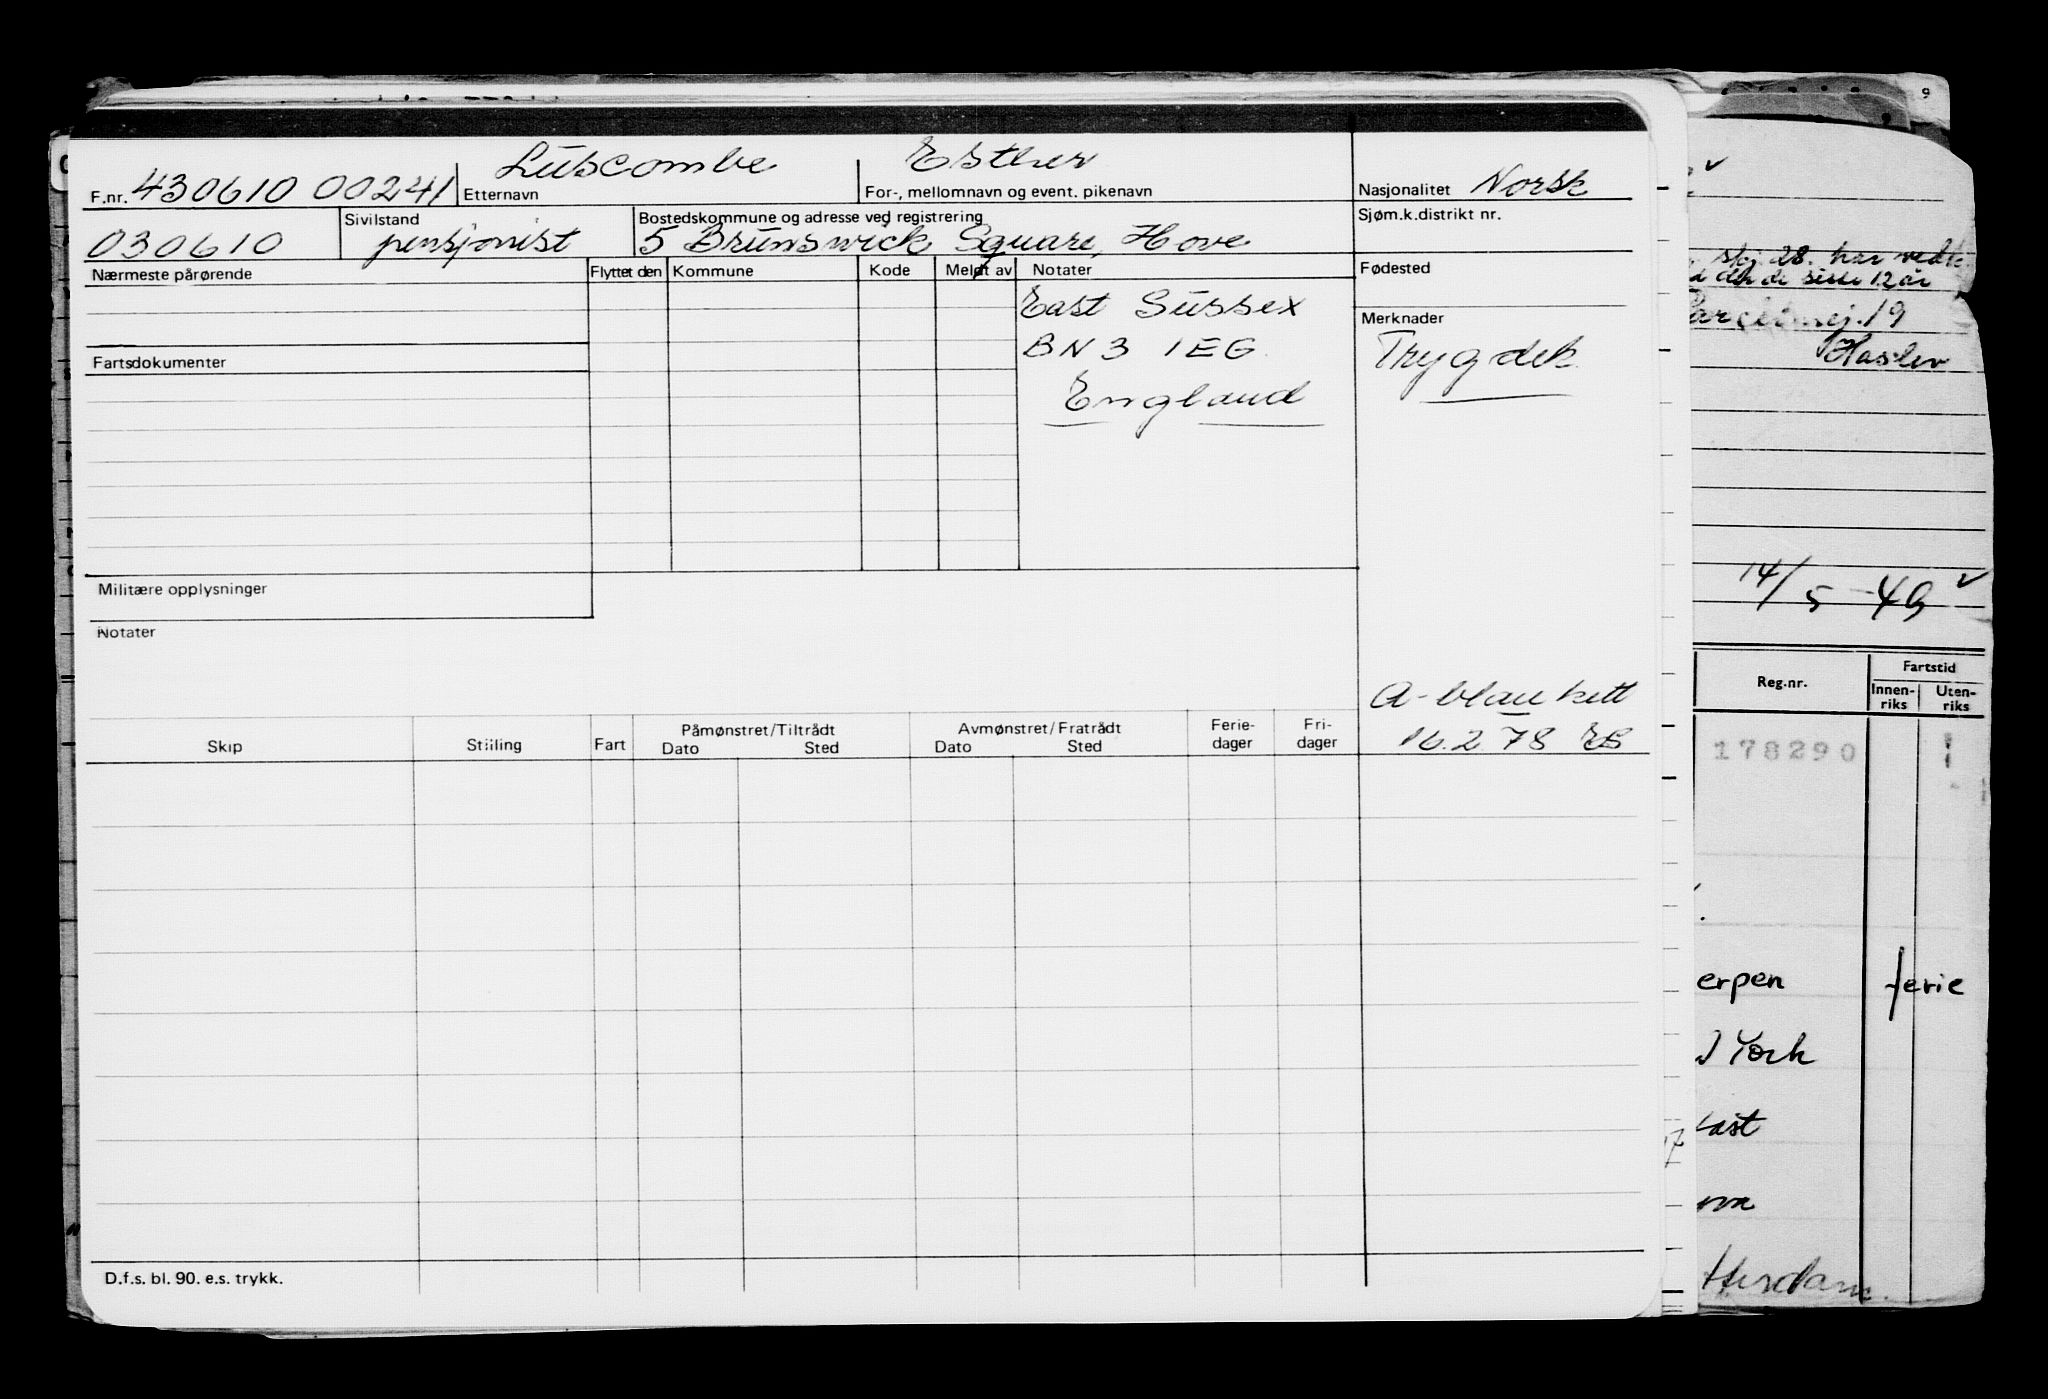 Luscombe Esther
F.nr. 430610 00241 Etternavn For-, mellomnavn og event. pikenavn Nasjonalitet Norsk
Sivilstand Bostedskommune og adresse ved registrering Sjøm.k.distrikt nr.
030610 pensjonist 5 Brunswick Square, Hove
Nærmeste pårørende Flyttet den Kommune Kode Meldt av Notater Fødested
East Sussex
Merknader
BN3 1EG Trygdek
Fartsdokumenter
England
Militære opplysninger
Notater
A-blankett
Skip Stilling Fart Påmønstret/Tiltrådt Avmønstret/Fratrådt Ferie- Fri-
Dato Sted Dato Sted dager dager 16.2 78 ES
D.f.s. bl. 90. e.s. trykk.
9
skj 28. har vedt
d den de siste 12 år
19
Haslev
14/5-49
Reg.nr. Fartstid
Innen- Uten-
riks riks
178290
erpen ferie
York
ast